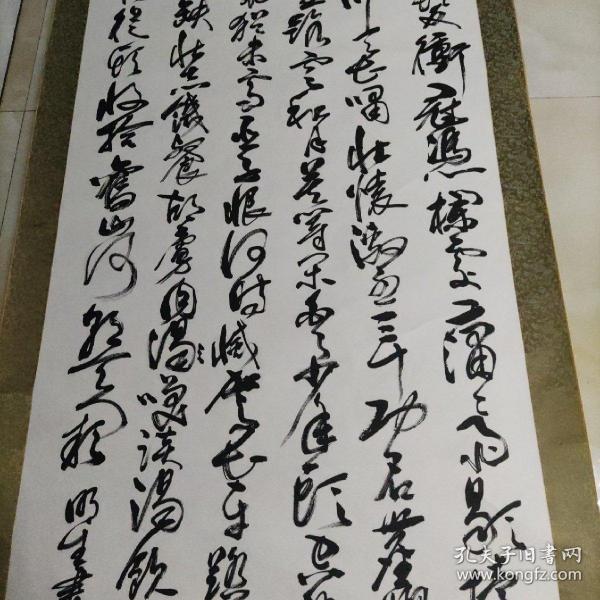 髮衝冠憑欄處潇〻雨歇
天長嘯壯懷激烈三十功名塵與
路雲和月莫等閒白了少年頭空
猶未雪臣子恨何時滅駕長車踏
缺壯志饑餐胡虜肉渴笑談渴飲
從頭收拾舊山河朝天闕 明生書
孔夫子旧书网
www.kongfz.com